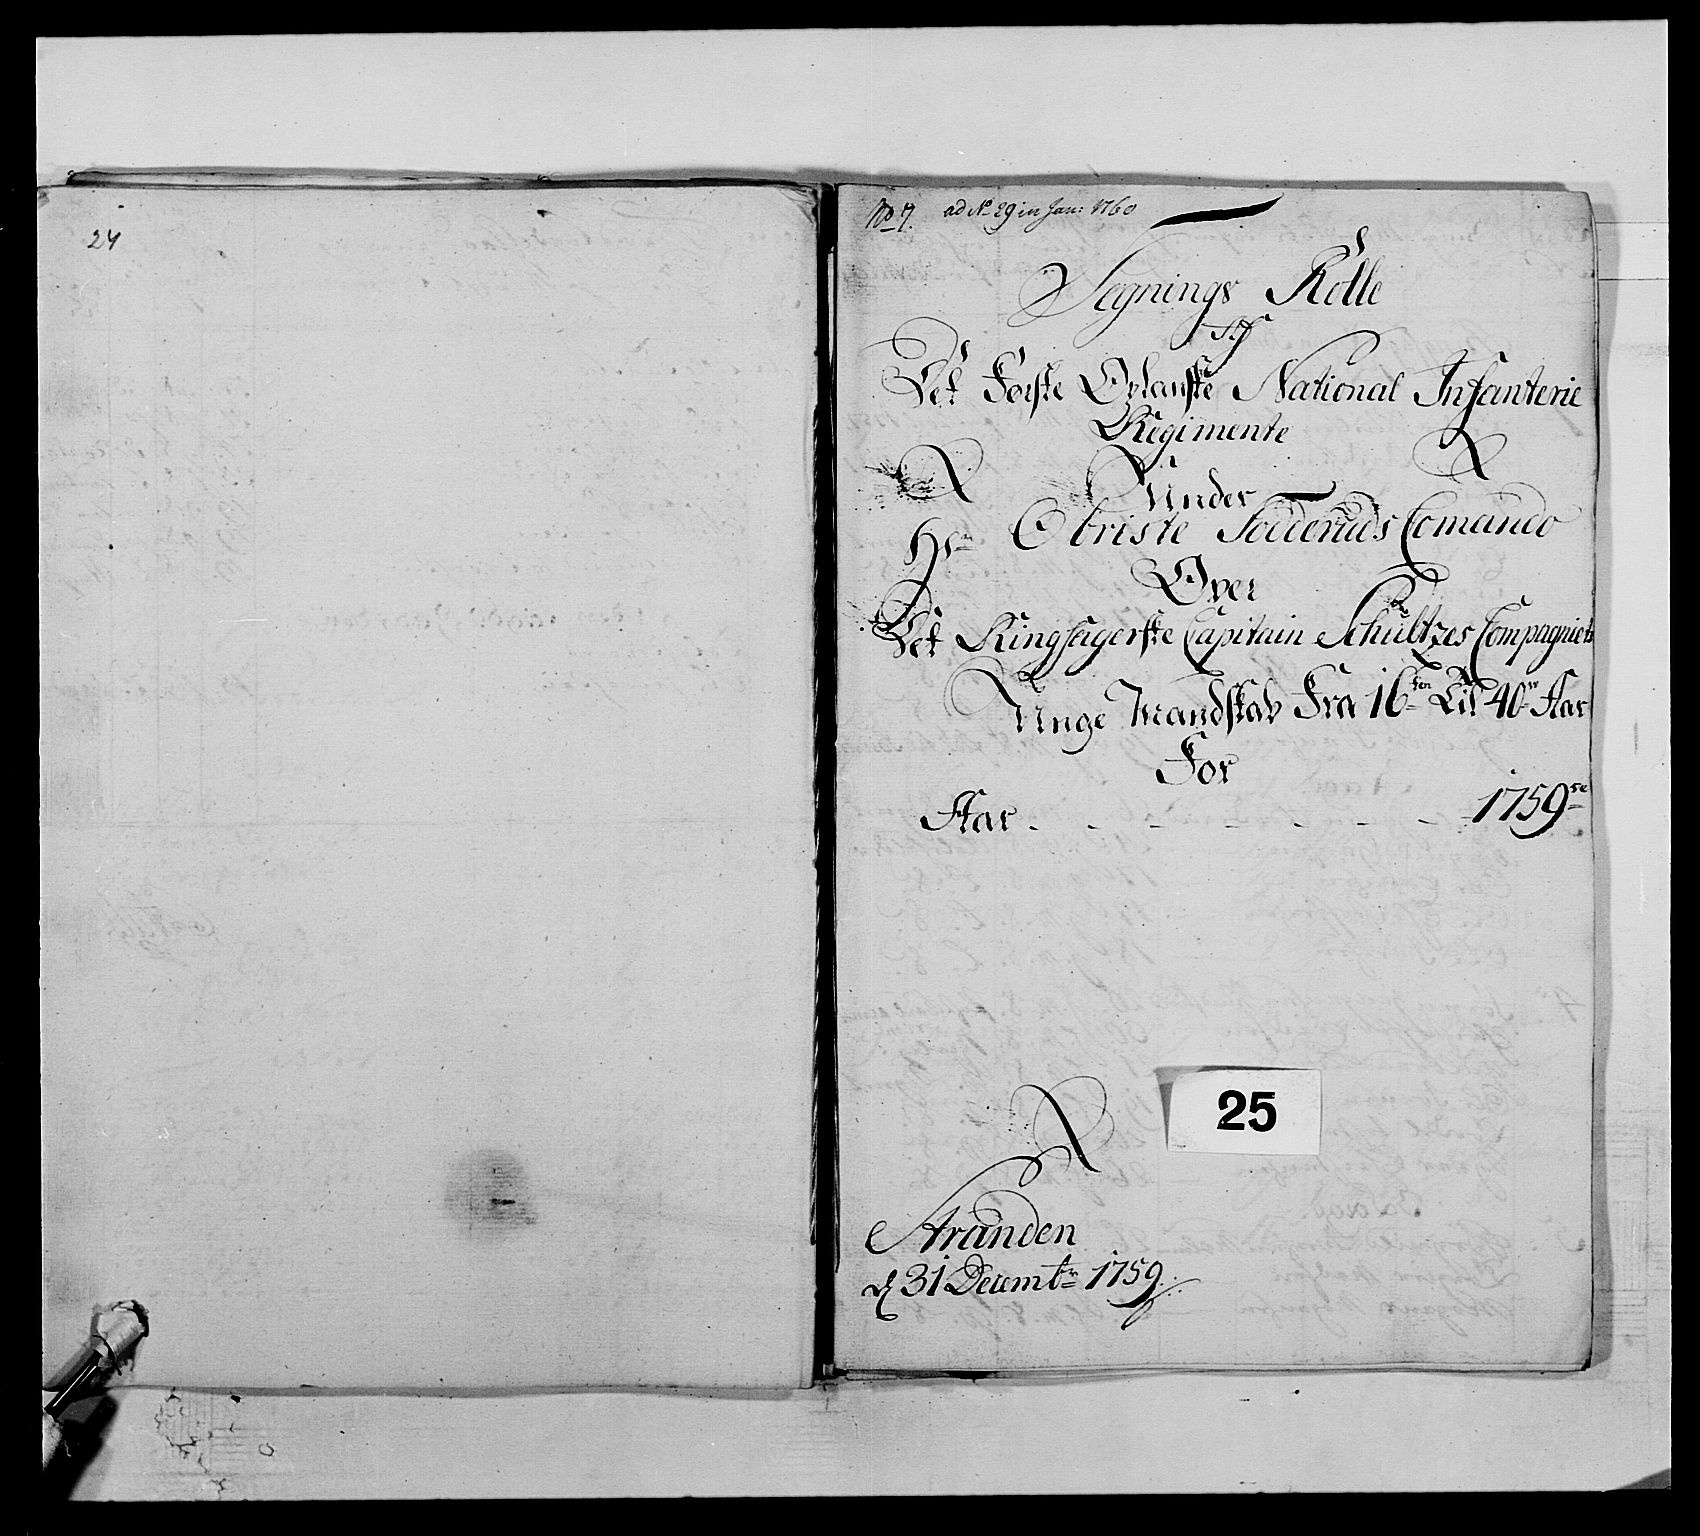 24
No 7. ad No 29 in Jan: 1760
Segnings Rolle
Af
Det Første Oplanske National Infanterie
Regimente
Under
Hr Obriste Comando
Over
Det Ringsagerske Capitain Schultzes Compagniets
Unge Mandskab Fra 16ten Til 40r Aar
For
Aar - - - - - - - 1759re
25
Stranden
d 31 Decembr 1759.